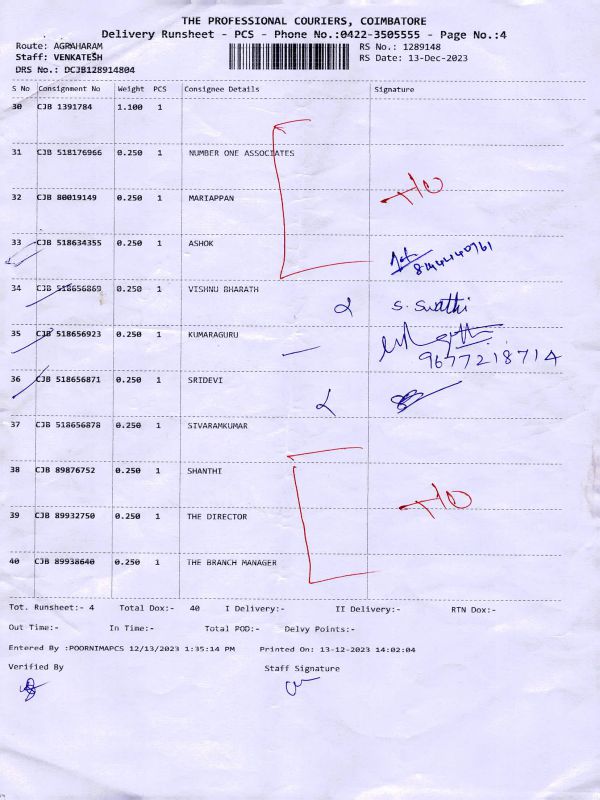 THE PROFESSIONAL COURIERS, COIMBATORE
Delivery Runsheet - PCS - Phone No.:0422-3505555 - Page No.:4
Route: AGRAHARAM RS No.: 1289148
Staff: VENKATESH RS Date: 13-Dec-2023
DRS No.: DCJB128914804
S No Consignment No Weight PCS Consignee Details Signature
30 CJB 1391784 1.100 1
31 CJB 518176966 0.250 1 NUMBER ONE ASSOCIATES
32 CJB 80019149 0.250 1 MARIAPPAN
HO
33 CJB 518634355 0.250 1 ASHOK
34 CJB 518656869 0.250 1 VISHNU BHARATH
S. Swathi
35 CJB 518656923 0.250 1 KUMARAGURU
9677218714
36 CJB 518656871 0.250 1 SRIDEVI
37 CJB 518656878 0.250 1 SIVARAMKUMAR
38 CJB 89876752 0.250 1 SHANTHI
HO
39 CJB 89932750 0.250 1 THE DIRECTOR
40 CJB 89938640 0.250 1 THE BRANCH MANAGER
Tot. Runsheet:- 4 Total Dox:- 40 I Delivery:- II Delivery:- RTN Dox:-
Out Time:- In Time:- Total POD:- Delvy Points:-
Entered By :POORNIMAPCS 12/13/2023 1:35:14 PM Printed On: 13-12-2023 14:02:04
Verified By Staff Signature